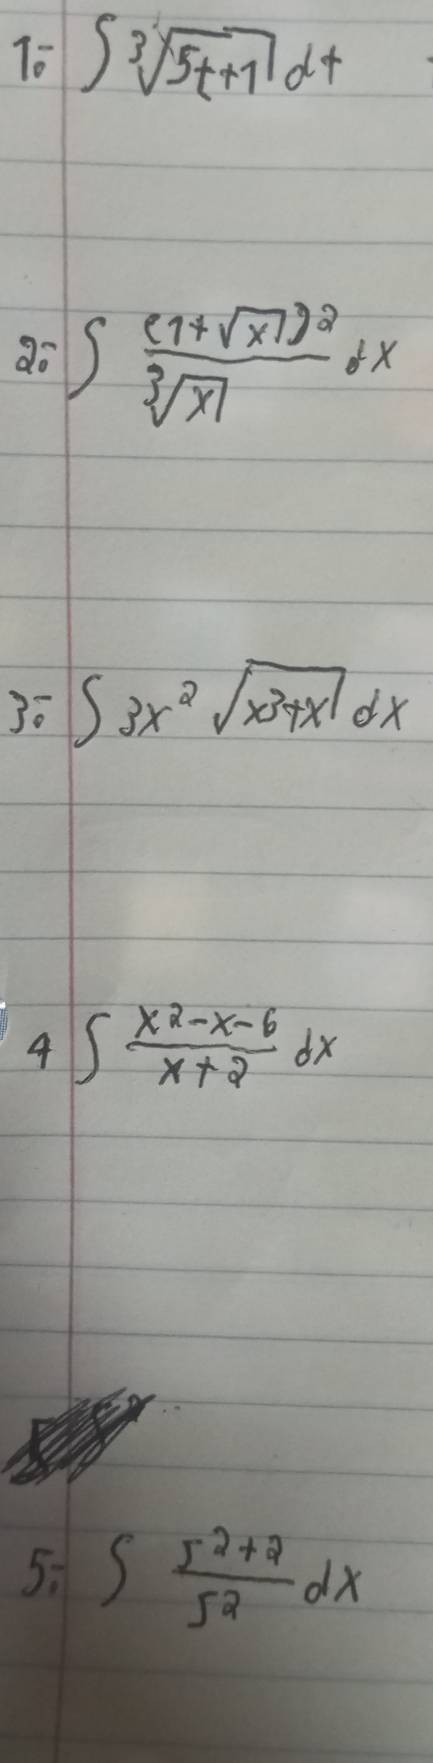 1.- ∫ ∛(5t+1) dt
2.- ∫ (1+√x)2 / ∛x dx
3.- ∫ 3x² √(x3+x) dx
4 ∫ x2-x-6 / x+2 dx
5.- ∫ 52+2 / 52 dx